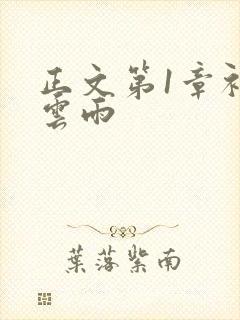 正文第1章初
雲雨
葉落紫南